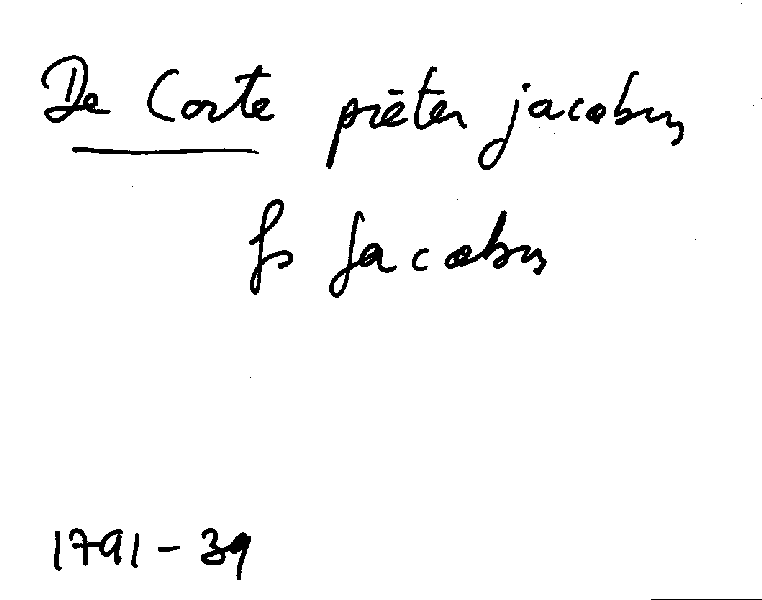 De Corte pieter jacobus
fs Jacobus
1791 - 39